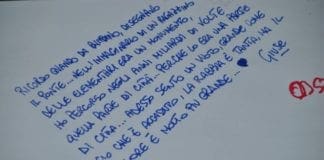 RICORDO QUANDO DA BAMBINO, DISEGNAVO
IL PONTE... NELL'IMMAGINARIO DI UN RAGAZZINO
DELLE ELEMENTARI ERA UN MONUMENTO,
HO PERCORSO NEGLI ANNI MILIARDI DI VOLTE
QUELLA PARTE DI CITTÀ... PERCHÉ LO ERA UNA PARTE
DI CITTÀ... ADESSO SENTO UN VUOTO GRANDE DOVE
CHE È ACCADUTO, LA RABBIA È TANTA, MA IL
È MOLTO PIÙ GRANDE...
Giuse